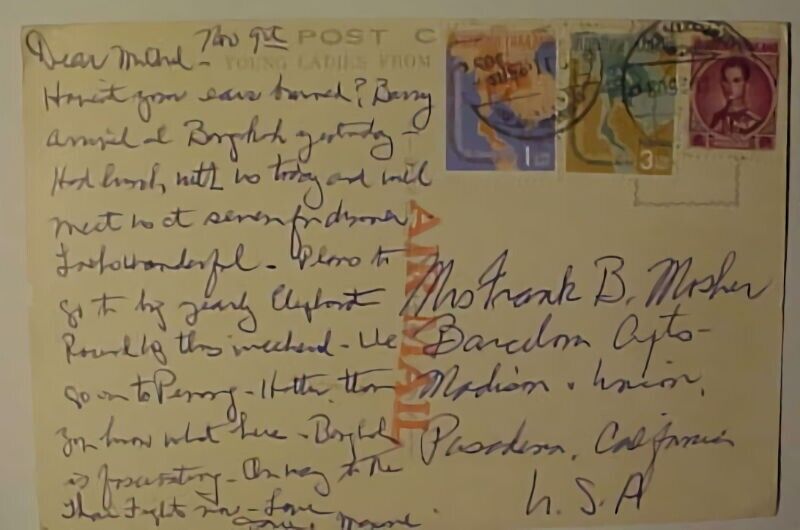 Nov 9th POST C
Dear
YOUNG LADIES FROM
Haven't your ears burned? Barry
arrived at Bangkok yesterday -
Had lunch with us today and will
meet us at seven for dinner
Looks wonderful - Plans to
go to big yearly Elephant
Round Up this weekend - We
go on to Penang - Hotter than
you know what here - Bangkok
is fascinating - On way to the
Thai Fights now - Love
AIR MAIL
1
3
Mrs Frank B. Mosher
Barcelona Apts -
Madison & Union,
Pasadena, California
U.S.A